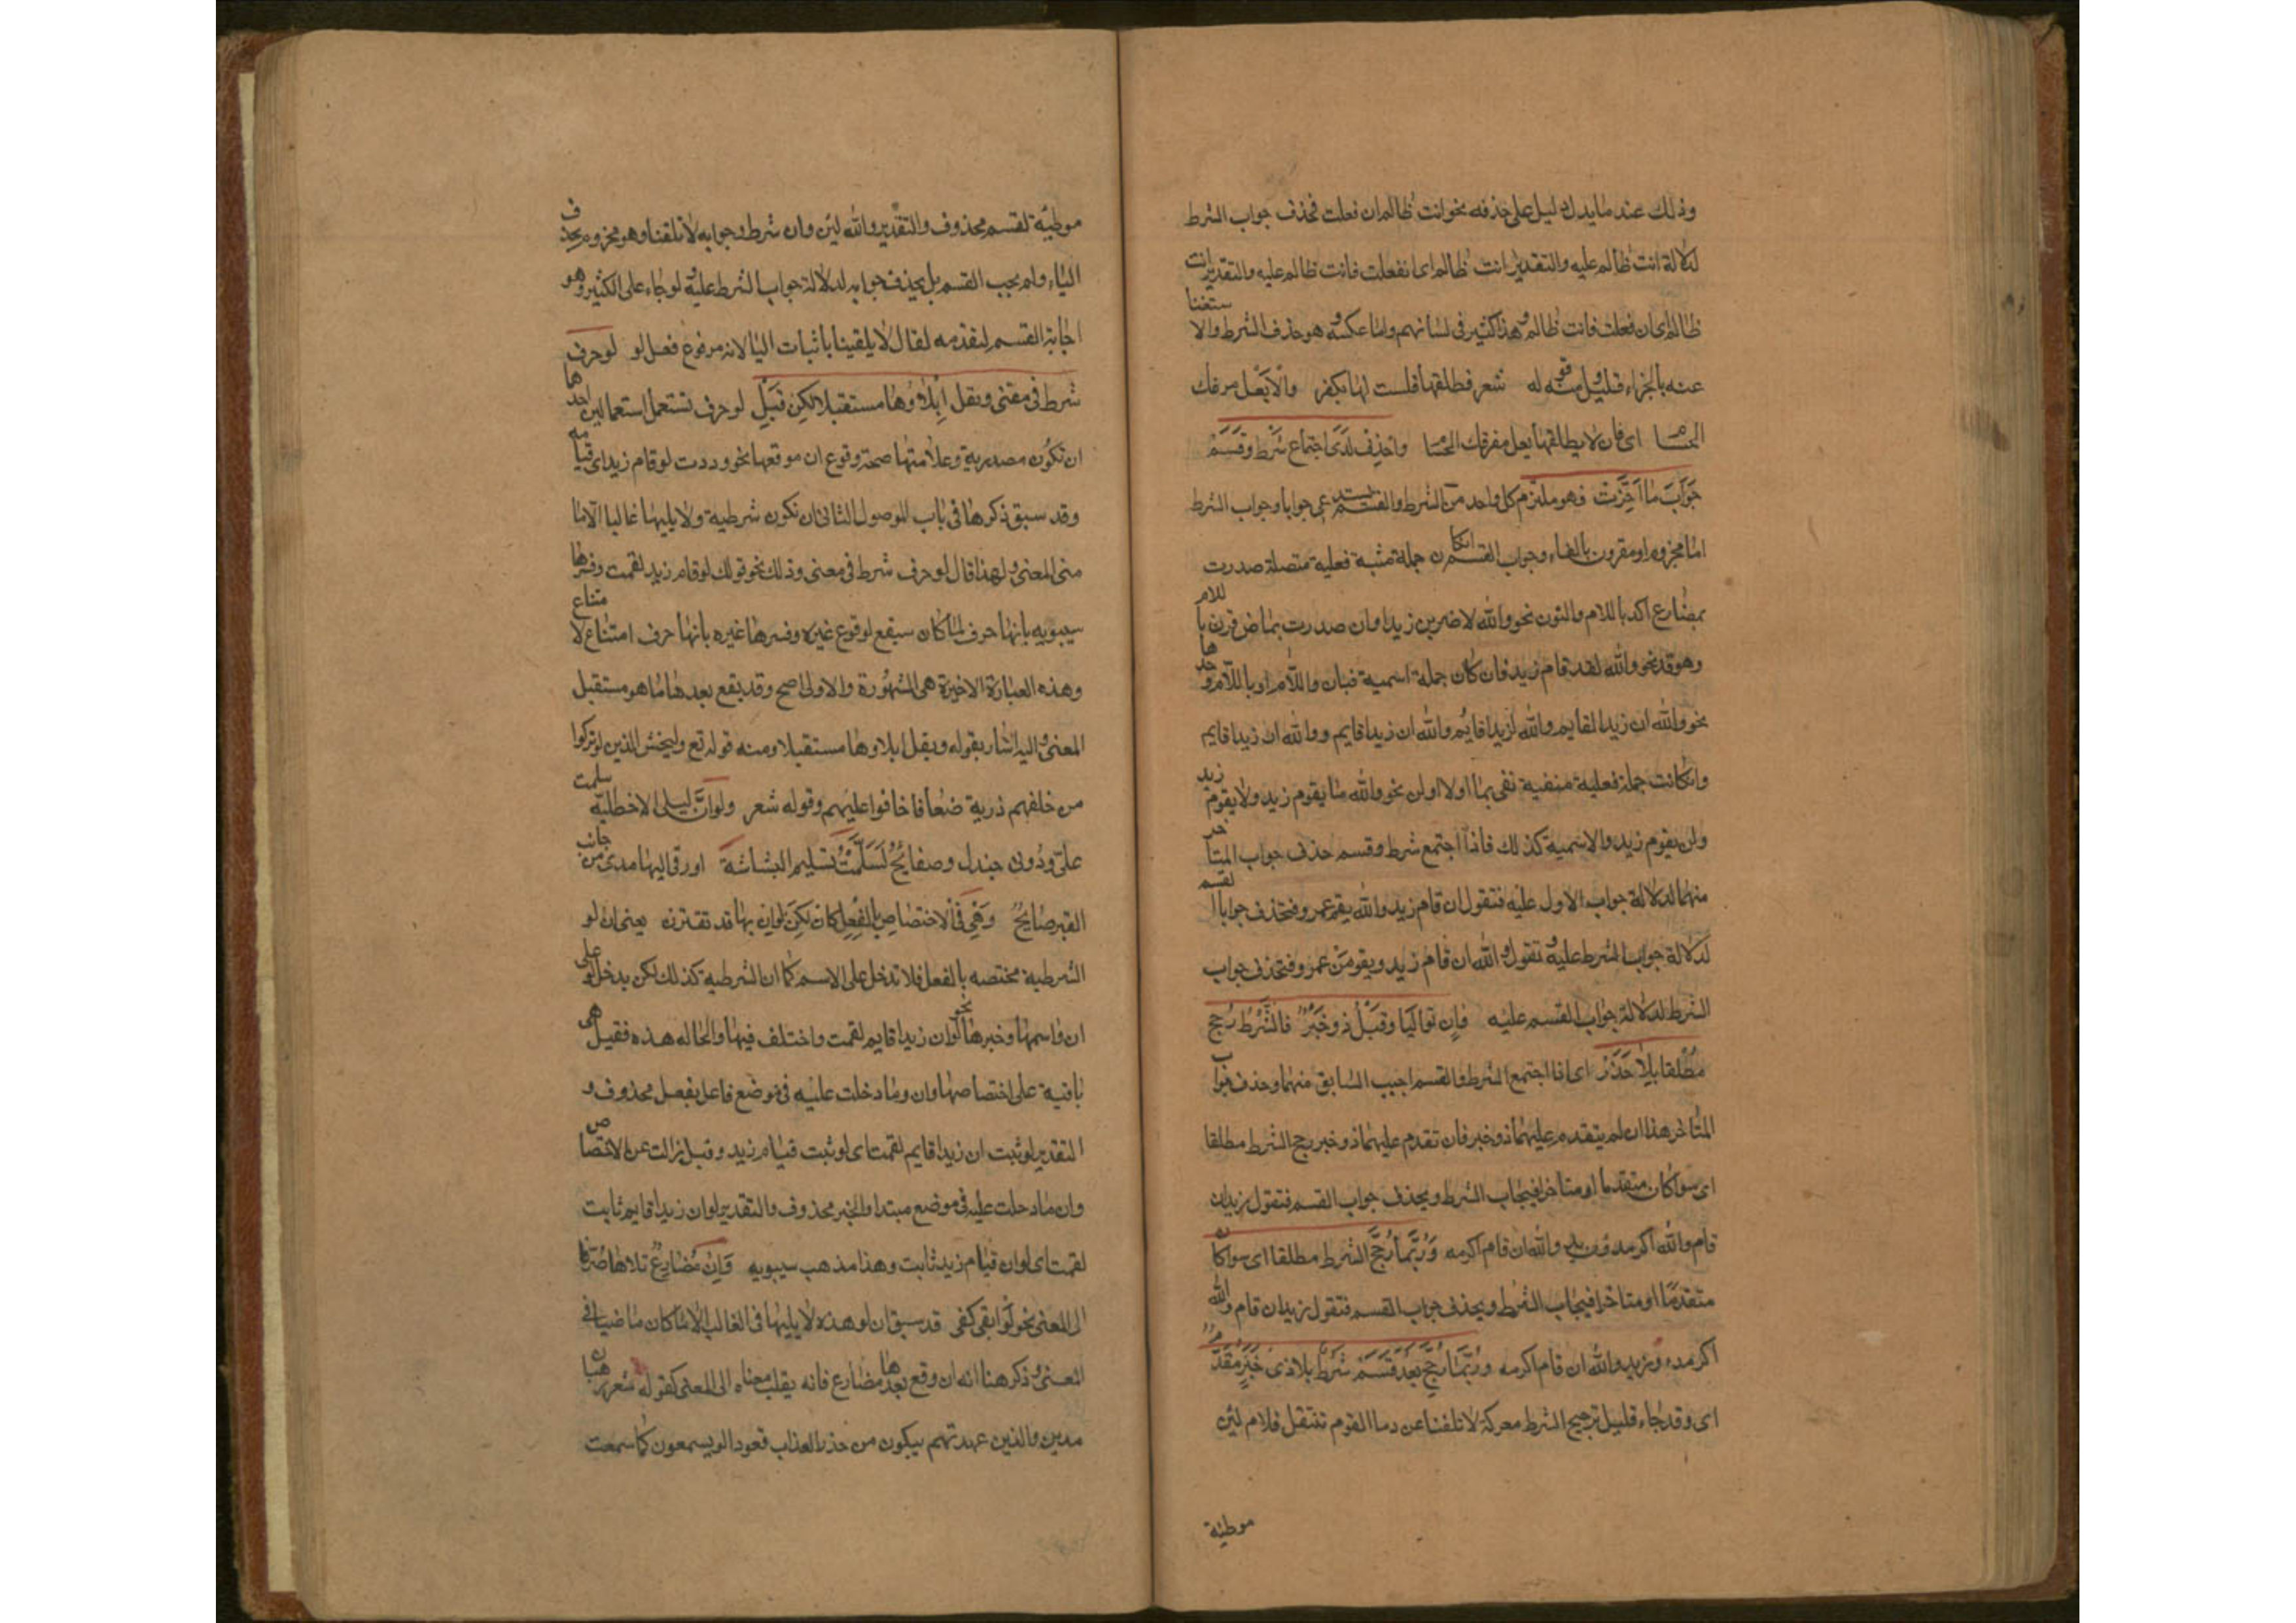 وذلك عند ما يدل دليل على حذفه نحو انت ظالم ان فعلت فحذف جواب الشرط
لدلالة انت ظالم عليه والتقدير انت ظالم ان فعلت فانت ظالم عليه والتقدير انت
ظالم ان فعلت فانت ظالم وهذا كثير في لسانهم واما عكسه وهو حذف الشرط والاستغنا
عنه بالجزاء فقليل ومنه قوله شعر فطلقها فلست لها بكفر والا يعل مفرقك
الحسام اى فان لا يطلقها يعل مفرقك الحسام واحذف لدى اجتماع شرط وقسم
جواب ما اخرت فهو ملتزم كل واحد من الشرط والقسم يستدعى جوابا وجواب الشرط
اما مجزوم او مقرون بالفاء وجواب القسم ان كان جملة مثبتة فعلية متصلة صدرت
بمضارع اكد باللام والنون نحو والله لاضربن زيدا وان صدرت بماض قرن باللام
وهو قد نحو والله لقد قام زيد فان كان جملة اسمية فبان واللام او باللام وحدها
نحو والله ان زيدا لقايم ووالله لزيد قايم والله ان زيدا قايم ووالله ان زيدا قايم
وان كانت جملة فعلية منفية نفى بما او لا او ان نحو والله ما يقوم زيد ولا يقوم زيد
ولن يقوم زيد والاسمية كذلك فاذا اجتمع شرط وقسم حذف جواب المتاخر
منهما لدلالة جواب الاول عليه فتقول ان قام زيد والله يقم عمرو فتحذف جواب القسم
لدلالة جواب الشرط عليه وتقول والله ان قام زيد ويقومن عمرو فتحذف جواب
الشرط لدلالة جواب القسم عليه فان تواليا وقبل ذو خبر فالشرط رجح
مطلقا بلا حذر اى اذا اجتمع الشرط والقسم اجيب السابق منهما وحذف جواب
المتاخر هذا ان لم يتقدم عليهما ذو خبر فان تقدم عليهما ذو خبر رجح الشرط مطلقا
اى سوا كان متقدما او متاخرا فيجاب الشرط ويحذف جواب القسم فتقول زيد ان
قام والله اكرمه وزيد والله ان قام اكرمه وربما رجح الشرط مطلقا اى سوا كان
متقدما او متاخرا فيجاب الشرط ويحذف جواب القسم فتقول زيد ان قام والله
اكرمه وزيد والله ان قام اكرمه وربما رجح بعد قسم شرط بلا ذى خبر مقدم
اى وقد جاء قليل ترجيح الشرط معركة لا تلفنا عن دما القوم ننتقل فلام لئن
موطئة
موطئة لقسم محذوف والتقدير والله لئن وان شرط وجوابه لا تلفنا وهو مجزوم بحذف
الياء ولم يجب القسم بل يحذف جوابه لدلالة جواب الشرط عليه ولو جاء على الكثير وهو
اجابة القسم لتقدمه لقال لا يلقينا باثبات اليا لانه مرفوع فصل لو لو حرف
شرط فى مضى ويقل ايلاوها مستقبلا لكن قبل لو حرف تستعمل استعمالين احدها
ان تكون مصدرية وعلامتها صحة وقوع ان موقعها نحو وددت لو قام زيد اى قيامه
وقد سبق ذكرها فى باب الموصول الثانى ان تكون شرطية ولا يليها غالبا الا ما
منى المعنى ولهذا قال لو حرف شرط فى معنى وذلك نحو قولك لو قام زيد لقمت وفسرها
سيبويه بانها حرف لما كان سيقع لوقوع غيره وفسرها غيره بانها حرف امتناع لامتناع
وهذه العبارة الاخيرة هى المشهورة والاولى اصح وقد يقع بعدها ما هو مستقبل
المعنى واليه اشار بقوله ويقل ايلاوها مستقبلا ومنه قوله تع وليخش الذين لو تركوا
من خلفهم ذرية ضعافا خافوا عليهم وقوله شعر ولو ان ليلى الاخيلية سلمت
على ودونى جندل وصفايح لسلمت تسليم البشاشة او زقا اليها صدى من جانب
القبر صايح وهى فى الاختصاص بالفعل كان لكن لو ان بها قد تقترن يعنى ان لو
الشرطية مختصه بالفعل فلا تدخل على الاسم كما ان الشرطية كذلك لكن يدخل لو على
ان واسمها وخبرها نحو لو ان زيدا قايم لقمت واختلف فيها والحاله هذه فقيل هى
باقية على اختصاصها وان وما دخلت عليه فى موضع فاعل بفعل محذوف و
التقدير لو ثبت ان زيدا قايم لقمت اى لو ثبت قيام زيد وقيل زالت عن الاختصاص
وان ما دخلت عليه فى موضع مبتدا والخبر محذوف والتقدير لو ان زيدا قايم ثابت
لقمت اى لو ان قيام زيد ثابت وهذا مذهب سيبويه وان مضارع تلاها صرفا
الى المعنى نحو لو يفى كفى قد سبق ان لو هذه لا يليها فى الغالب الا ما كان ماضيا فى
المعنى وذكر هنا انه ان وقع بعدها مضارع فانه يقلب معناه الى المعنى كقوله شعر رهبان
مدين والذين عهدتهم يبكون من حذر العذاب قعودا لو يسمعون كما سمعت